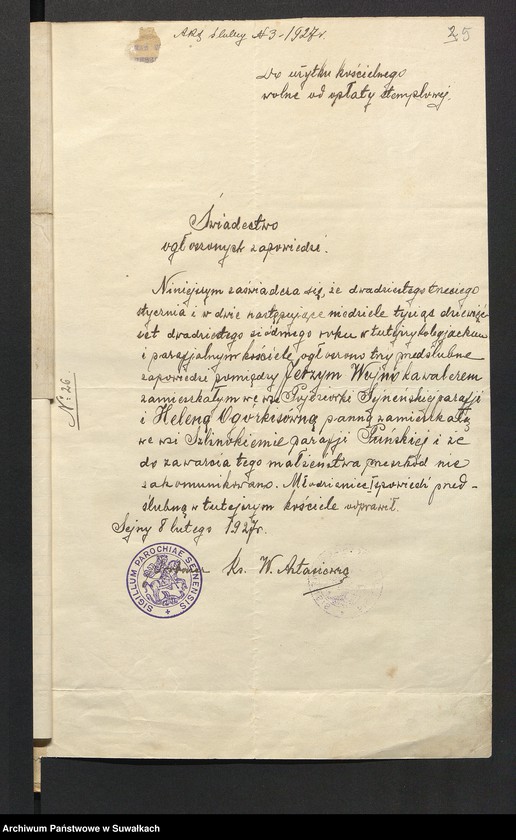 Akt ślubny № 3-1927r.
25
Do użytku kościelnego
wolne od opłaty stemplowej.
Świadectwo
ogłoszonych zapowiedzi.
Niniejszym zaświadcza się, że dwudziestego trzeciego
stycznia i w dwie następujące niedziele tysiąc dziewięć-
set dwudziestego siódmego roku w tutejszym
i parafjalnym kościele ogłoszono trzy przedślubne
zapowiedzi pomiędzy Jerzym Wojno kawalerem
zamieszkałym we wsi Sejneńskiej parafji
i Heleną panną zamieszkałą
we wsi Szlinokiemie parafji Puńskiej i że
do zawarcia tego małżeństwa przeszkód nie
zakomunikowano. Młodzieniec spowiedź przed-
ślubną w tutejszym kościele odprawił.
Sejny 8 lutego 1927r.
№ 26
Ks. W.
SIGILLUM PAROCHIAE SEJNENSIS
Archiwum Państwowe w Suwałkach